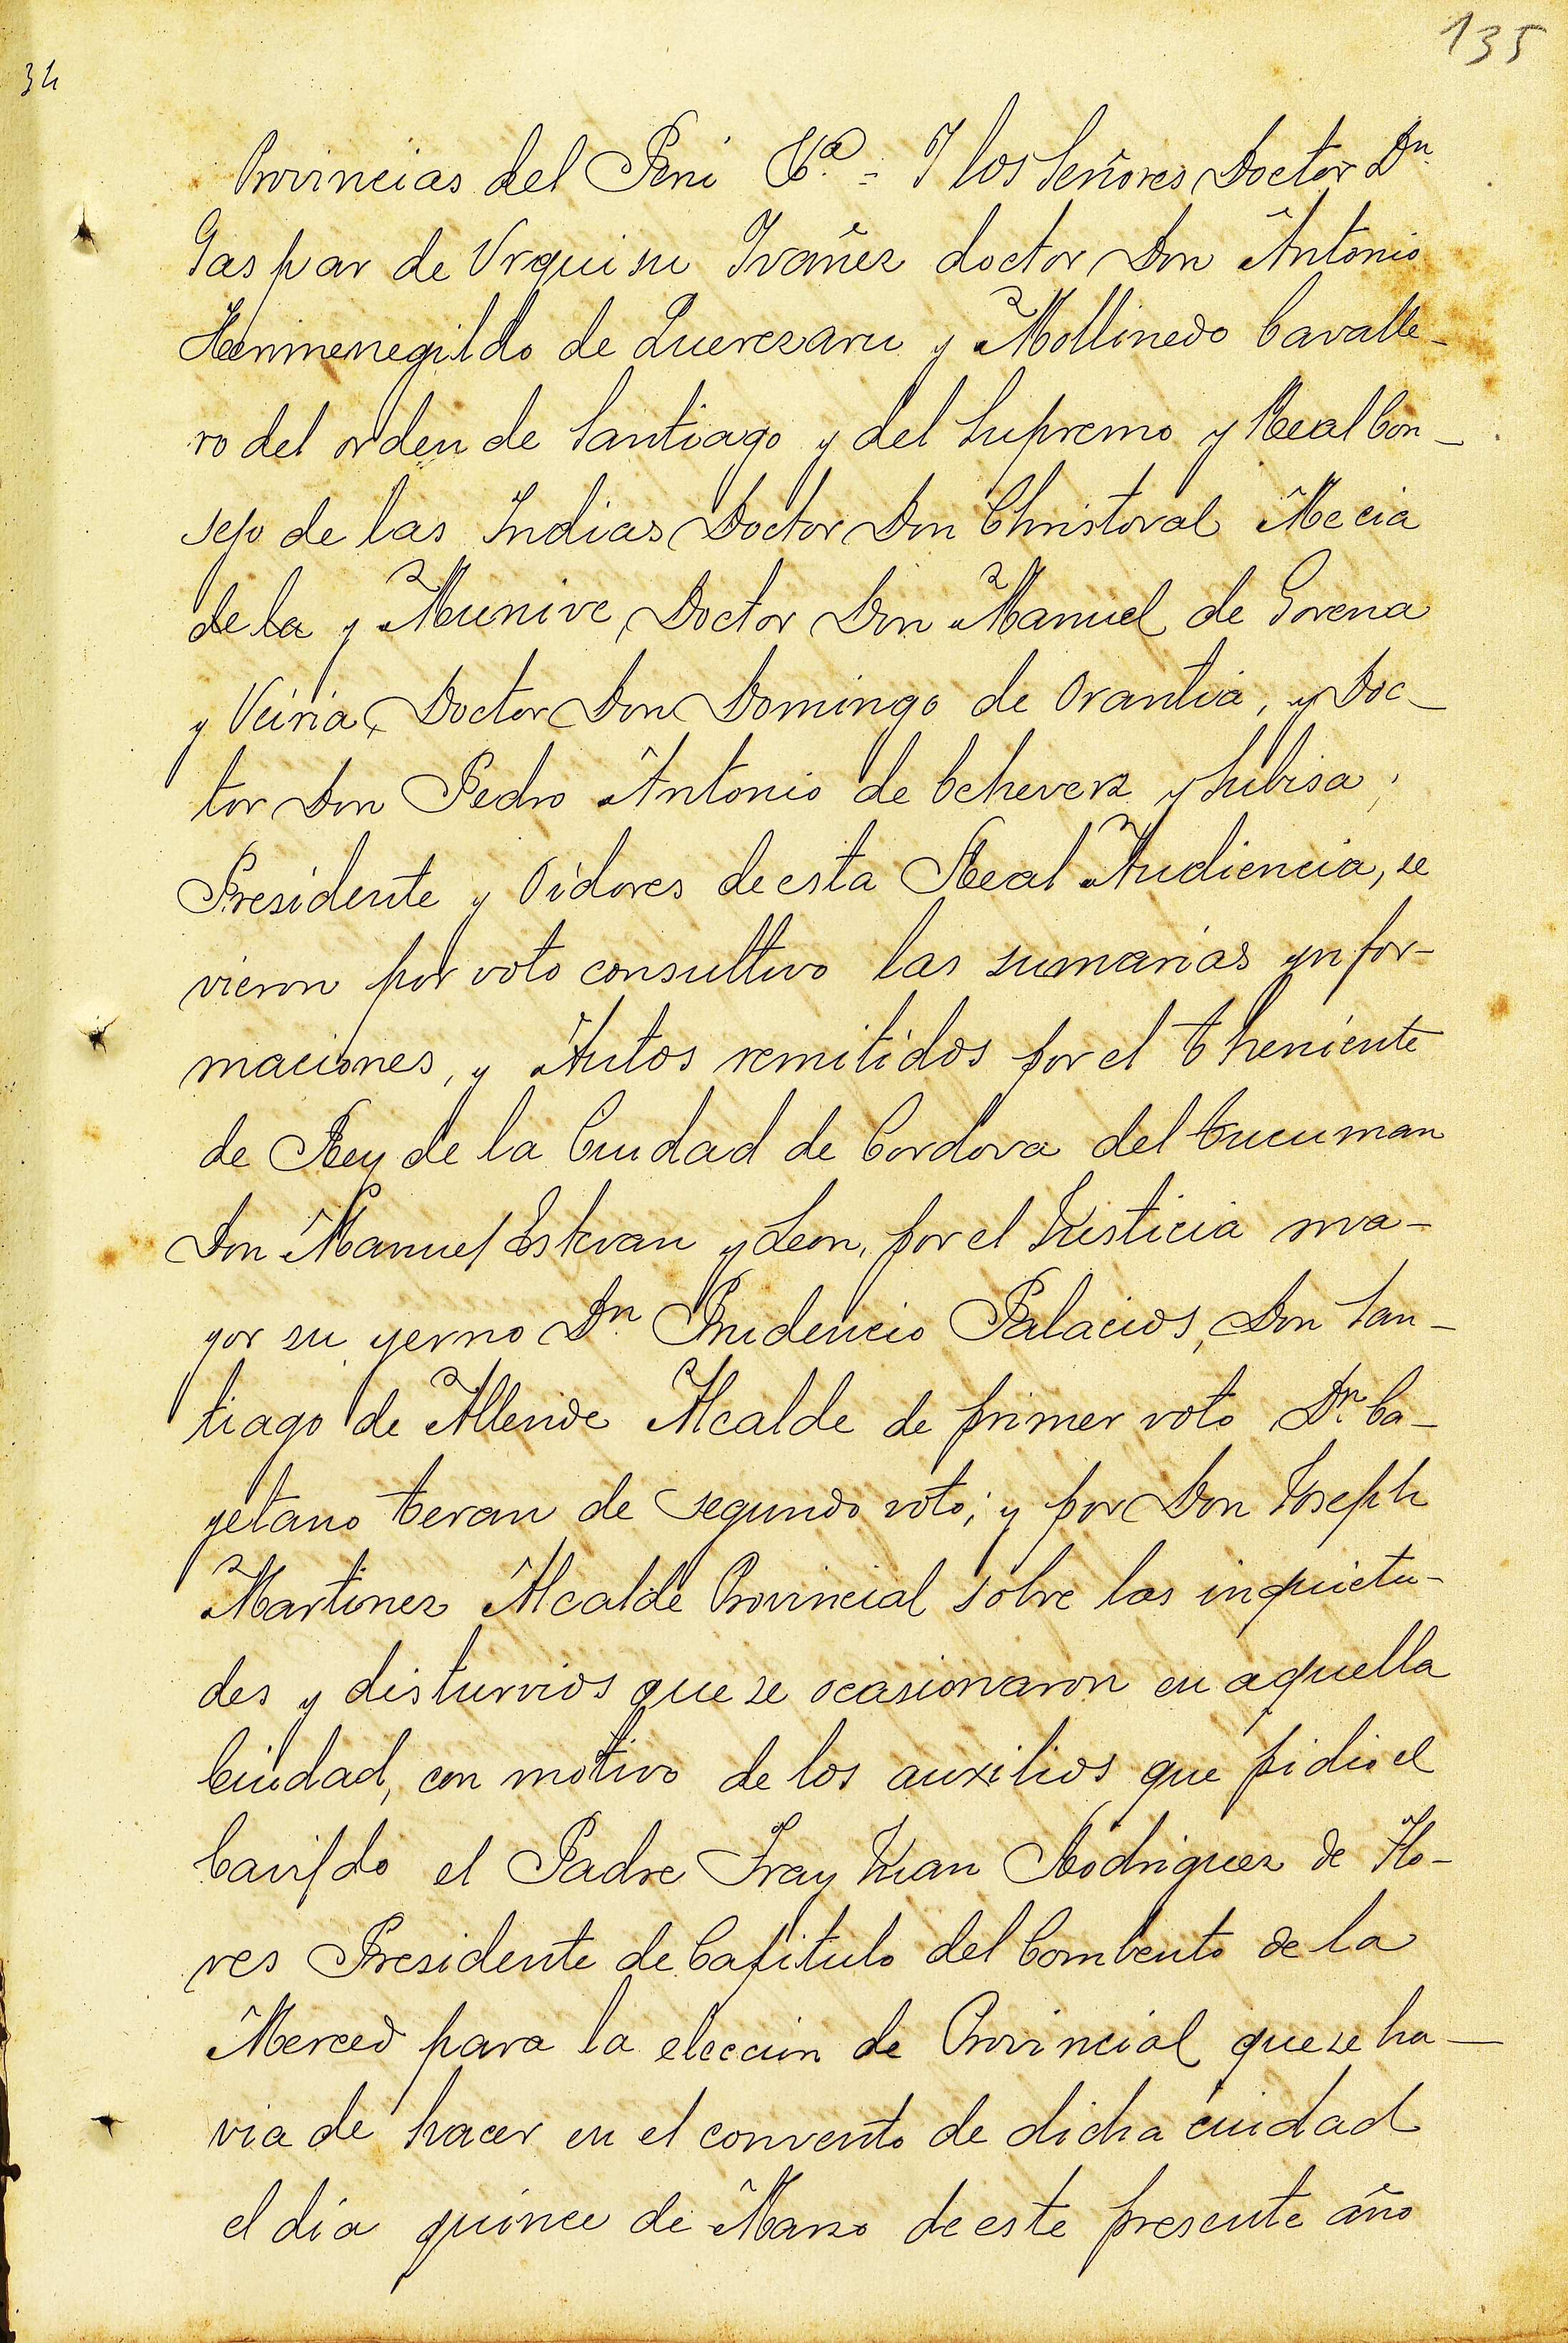 135
34
Provincias del Perú &.ª = Y los Señores Doctor Dn.
Gaspar de Vrquisu Yvañez doctor Don Antonio
Hermenegildo de Querezaru y Mollinedo Cavalle-
ro del orden de Santiago y del Supremo y Real Con-
sejo de las Indias Doctor Don Christoval Mecia
de la y Munive, Doctor Don Manuel de Gorena
y Veiria, Doctor Don Domingo de Orantia, y Doc-
tor Don Pedro Antonio de Echeverz y Subisa;
Presidente y Oidores de esta Real Audiencia, se
vieron por voto consultivo las sumarias ynfor-
maciones, y Autos remitidos por el Theniente
de Rey de la Ciudad de Cordova del tucuman
Don Manuel Estevan y Leon, por el Justicia ma-
yor su yerno Dn. Prudencio Palacios, Don San-
tiago de Allende Alcalde de primer voto Dn. Ca-
yetano teran de segundo voto; y por Don Joseph
Martinez Alcalde Provincial sobre las inquietu-
des y disturvios que se ocasionaron en aquella
Ciudad, con motivo de los auxilios que pidio el
Cavildo el Padre Fray Juan Rodriguez de Flo-
res Presidente de Capitulo del Combento de la
Merced para la eleccion de Provincial que se ha-
via de hacer en el convento de dicha ciudad
el dia quince de Marzo de este presente año